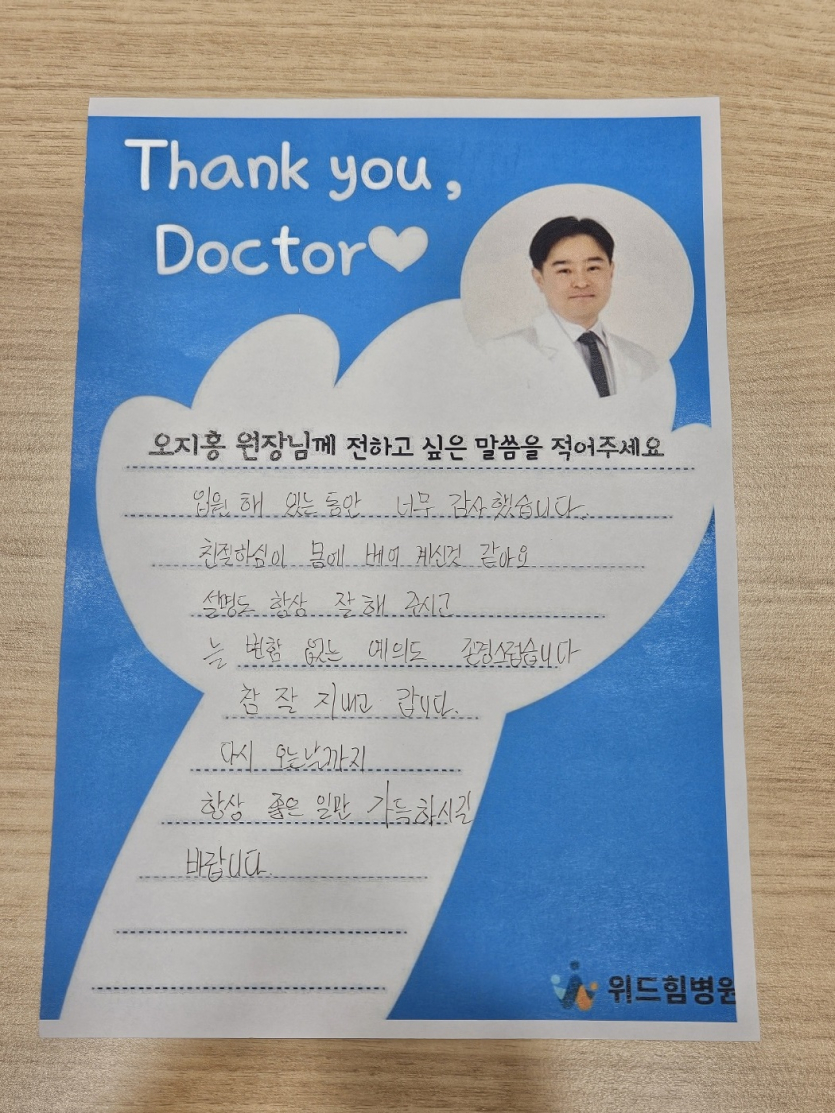 Thank you,
Doctor
오지홍 원장님께 전하고 싶은 말씀을 적어주세요
입원 해 있는 동안 너무 감사했습니다.
친절하심이 몸에 베어 계신것 같아요
설명도 항상 잘 해 주시고
늘 변함 없는 예의도 존경스럽습니다
참 잘 지내고 갑니다.
다시 오는날까지
항상 좋은 일만 가득하시길
바랍니다.
위드힘병원